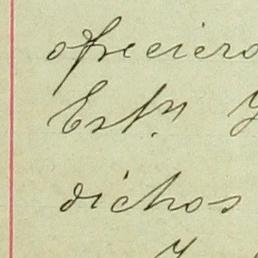 ofreciero
Estn. Y
dichos